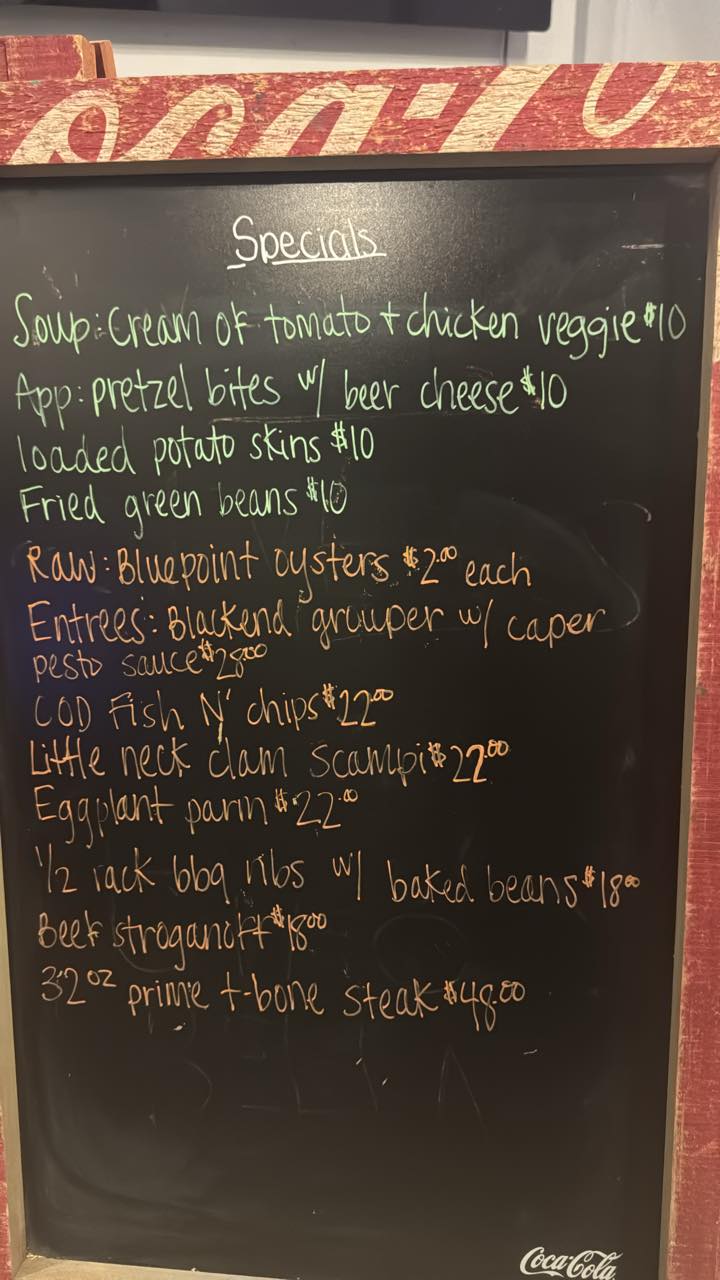 Coca-Co
Specials
Soup: Cream of tomato + chicken veggie $10
App: pretzel bites w/ beer cheese $10
loaded potato skins $10
Fried green beans $10
Raw: Bluepoint oysters $2.00 each
Entrees: Blackend grouper w/ caper
pesto sauce $28.00
COD Fish N' chips $22.00
Little neck clam scampi $22.00
Eggplant parm $22.00
1/2 rack bbq ribs w/ baked beans $18.00
Beef stroganoff $18.00
32oz prime t-bone steak $48.00
Coca-Cola